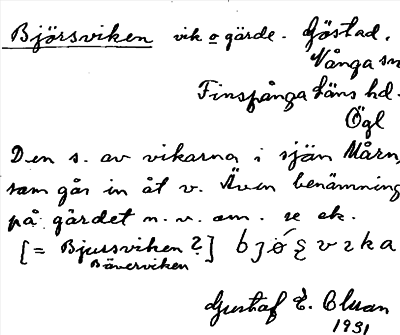 Björsviken vik o gärde. Göstad,
Vånga sn
Finspånga läns hd.
Ögl
Den s. av vikarna i sjön Mårn,
som går in åt v. Även benämning
på gärdet n. v. om. se ek.
[= Bjursviken?]
Bäverviken
Gustaf E. Cluan
1931